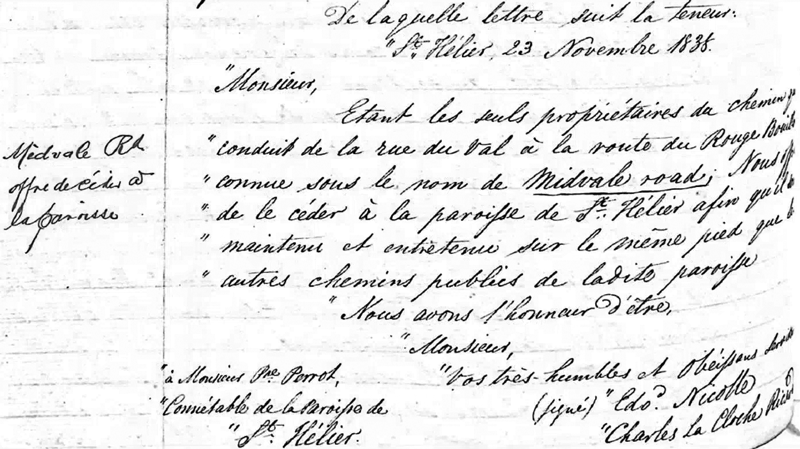 De laquelle lettre suit la teneur:
"St. Hélier, 23 Novembre 1838.
"Monsieur,
Etant les seuls propriétaires du chemin
"conduit de la rue du Val à la route du Rouge
"connue sous le nom de Midvale road; Nous
"de le céder à la paroisse de St. Hélier afin qu'il
"maintenu et entretenu sur le même pied que
"autres chemins publics de ladite paroisse
"Nous avons l'honneur d'être,
"Monsieur,
"Vos très-humbles et Obéissans
(signé) "Edd. Nicolle
"Charles La Cloche
"à Monsieur Pre Perrot,
"Connétable de la Paroisse de
"St. Hélier.
Midvale Rd
offre de céder à
la paroisse